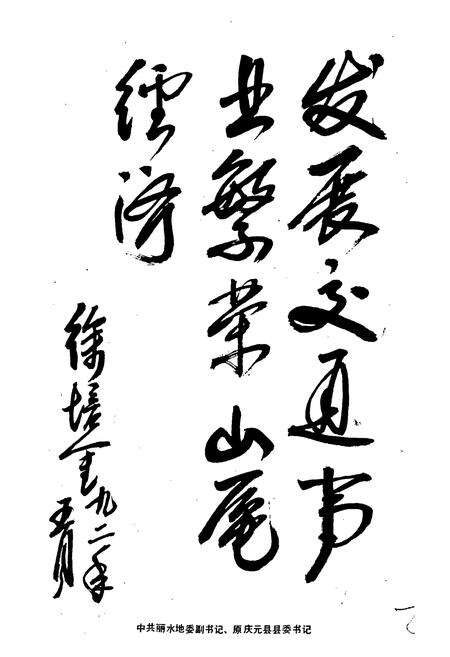 发展交通事
业繁荣山区
经济
徐培金九二年
五月
中共丽水地委副书记、原庆元县县委书记